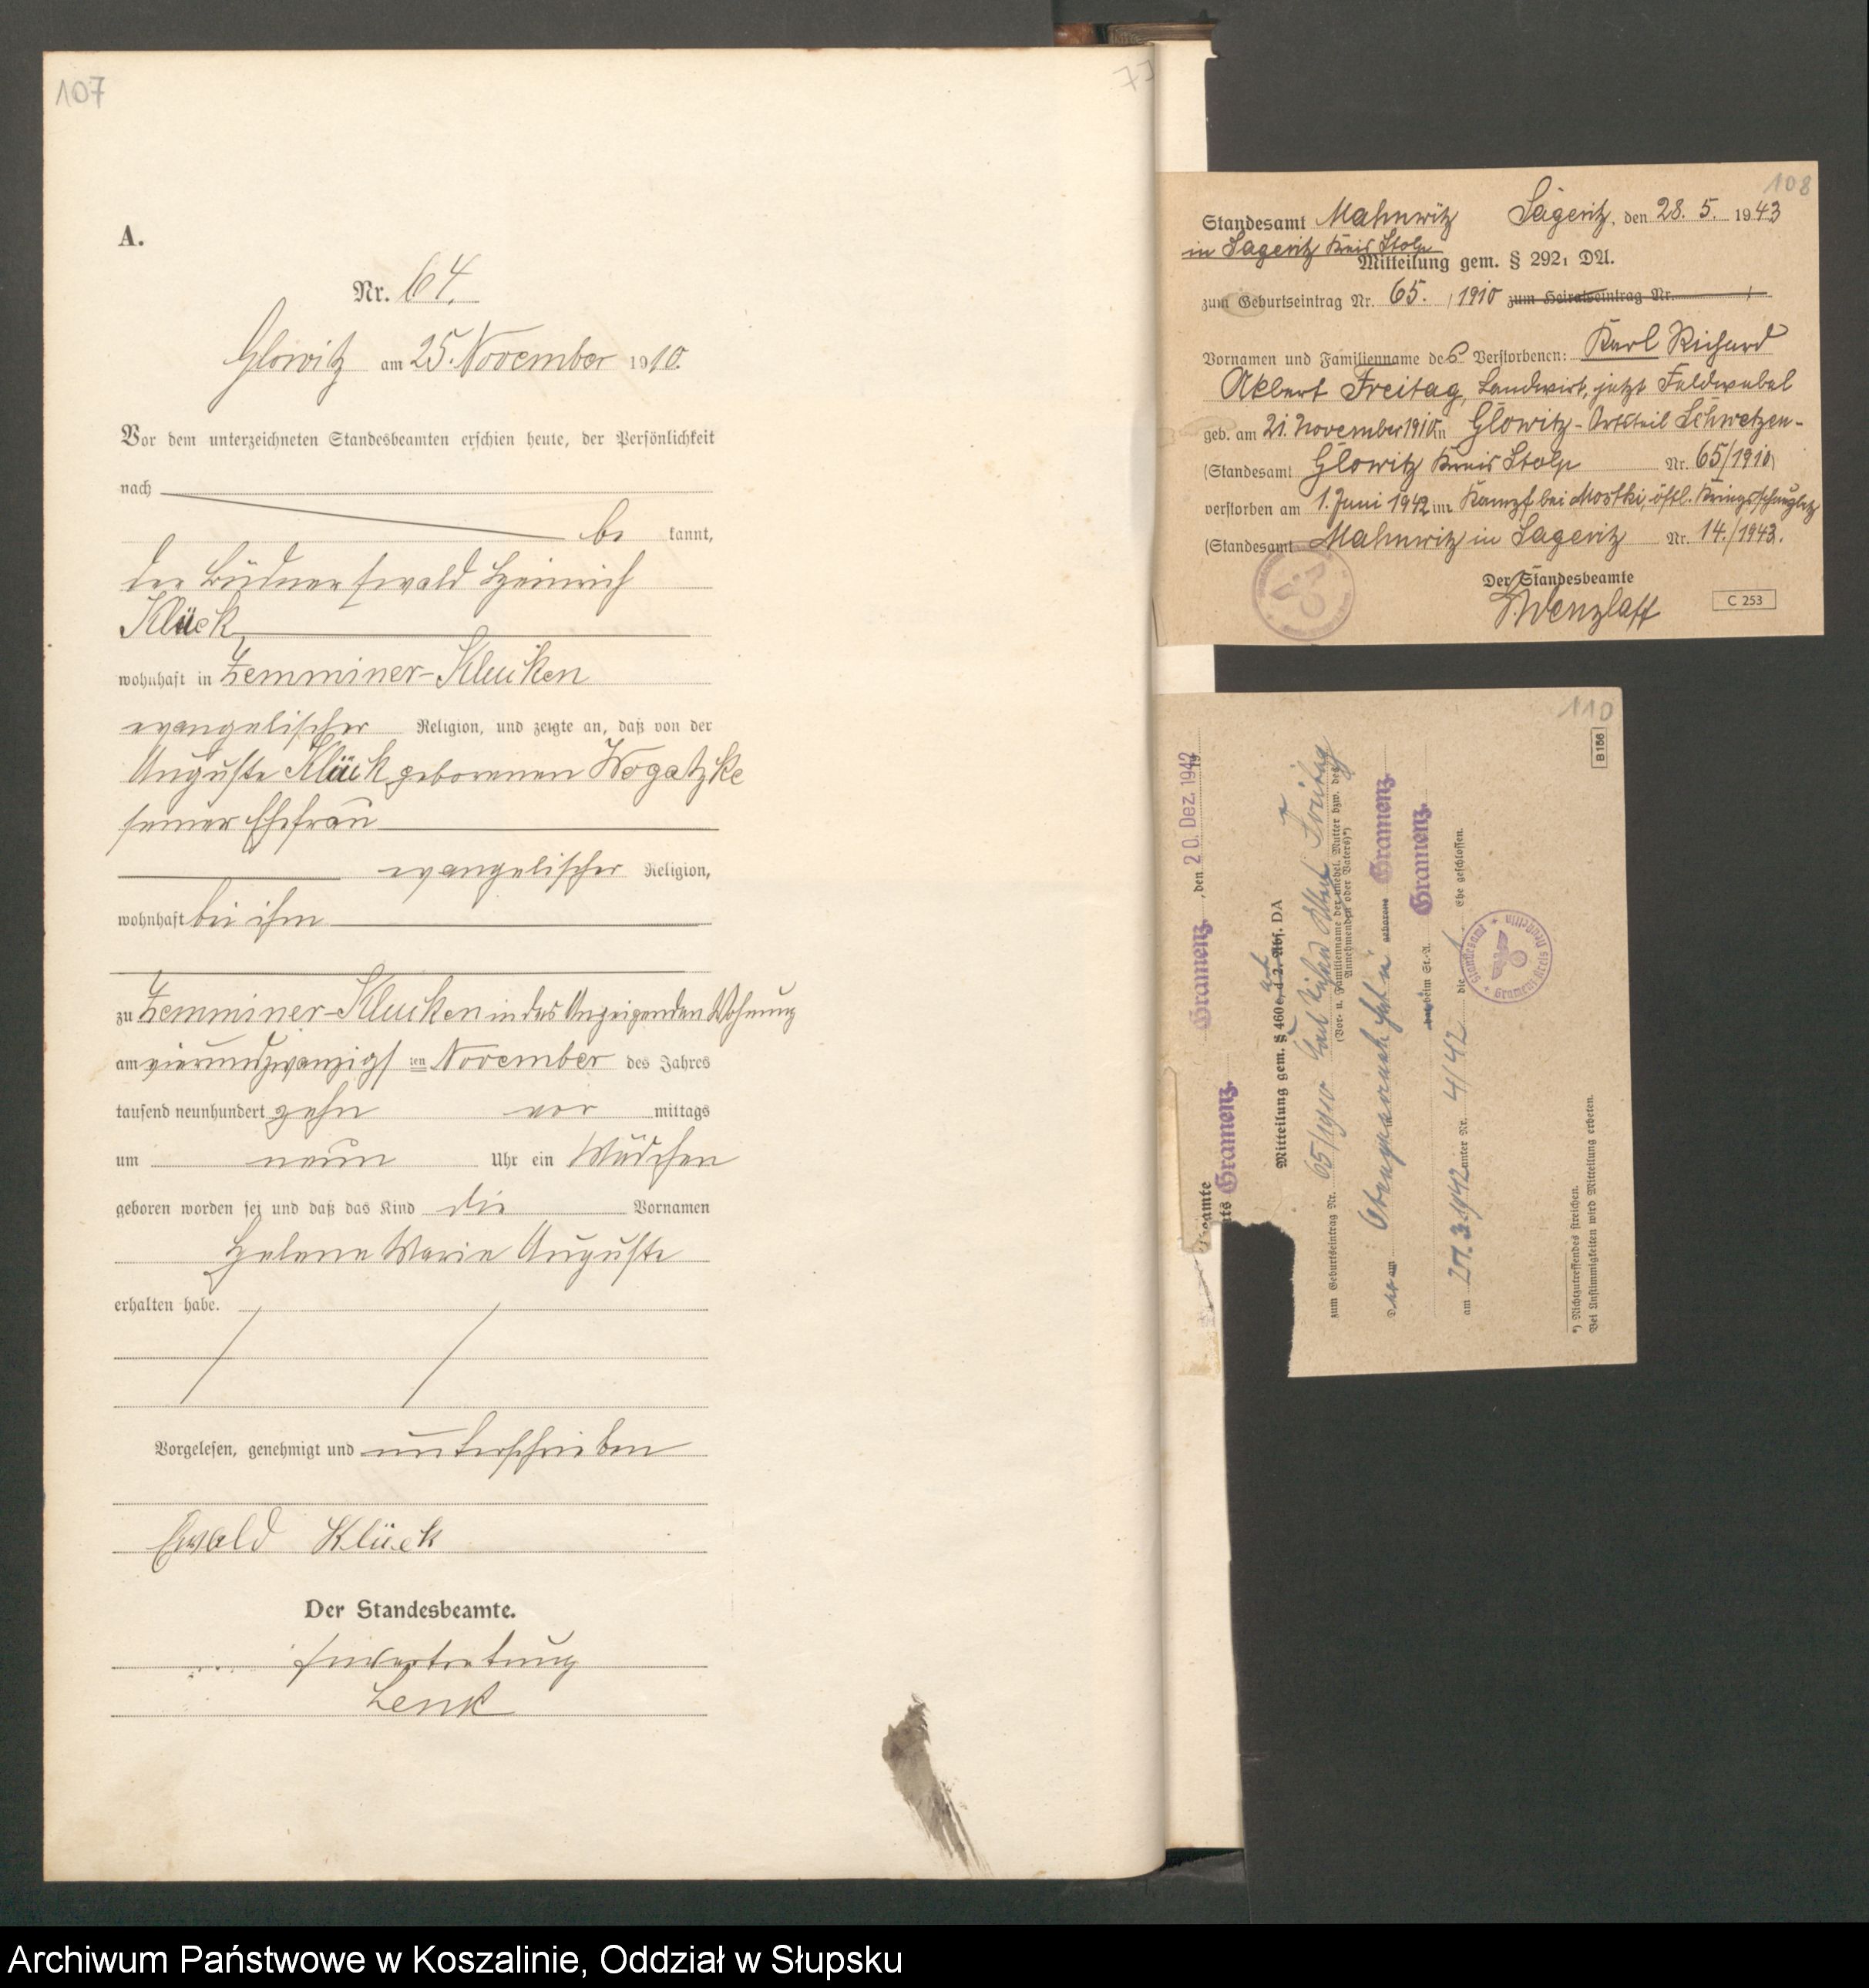 107
77
A.
Nr. 64.
Glowitz am 25. November 1910.
Vor dem unterzeichneten Standesbeamten erschien heute, der Persönlichkeit
nach
be kannt,
der Büdner Ewald Heinrich
Klück,
wohnhaft in Zemminer-Klucken
evangelischer Religion, und zeigte an, daß von der
Auguste Klück geborenen Wogatzke
seiner Ehefrau
evangelischer Religion,
wohnhaft bei ihm
zu Zemminer-Klucken in des Anzeigenden Wohnung
am vierundzwanzigs ten November des Jahres
tausend neunhundert zehn vor mittags
um neun Uhr ein Mädchen
geboren worden sei und daß das Kind die Vornamen
Helene Marie Auguste
erhalten habe.
Vorgelesen, genehmigt und unterschrieben
Ewald Klück
Der Standesbeamte.
In Vertretung
Lenk
108
Standesamt Mahnwitz Sageritz, den 28. 5. 1943
in Sageritz Kreis Stolp
Mitteilung gem. § 292, DA.
zum Geburtseintrag Nr. 65. / 1910 zum Heiratseintrag Nr. /
Vornamen und Familienname des Verstorbenen: Karl Richard
Albert Freitag, Landwirt, jetzt Feldwebel
geb. am 21. November 1910 in Glowitz-Ortsteil Schwetzen-
(Standesamt Glowitz Kreis Stolp Nr. 65/1910)
verstorben am 1. Juni 1942 im Kampf bei Mostki, östl. Kriegsschauplatz
(Standesamt Mahnwitz in Sageritz Nr. 14./1943.
Der Standesbeamte
Wenzlaff
C 253
110
B 156
Gramenz, den 20. Dez. 1942
eamte
ts Gramenz.
Mitteilung gem. § 460 c, d 2. Abs. DA
zum Geburtseintrag Nr. 65/1910 Karl Richard Albert Freitag
(Vor- u. Familienname der unehel. Mutter bzw. des
Annehmenden oder Vaters)*)
am Obengenannte hat in Gramenz
geborene
beim St.-A. Gramenz.
am 27.3.1942 unter Nr. 4/42 die Ehe geschlossen.
Standesamt
Gramenz Kreis Neustettin
*) Nichtzutreffendes streichen.
Bei Unstimmigkeiten wird Mitteilung erbeten.
Archiwum Państwowe w Koszalinie, Oddział w Słupsku